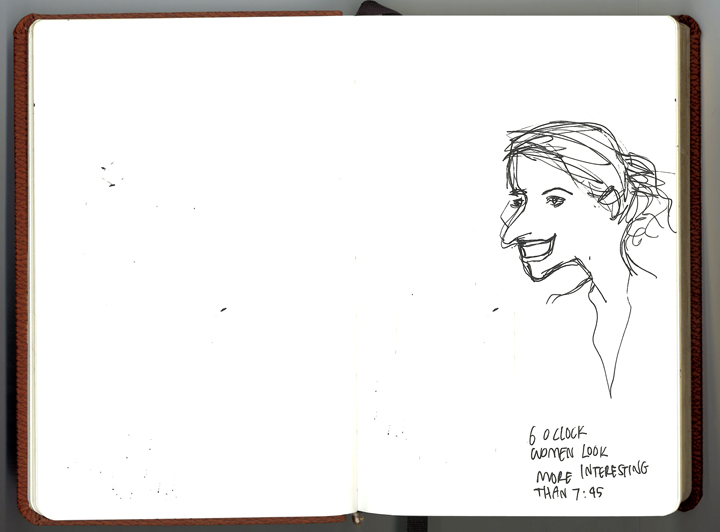 6 O CLOCK
WOMEN LOOK
MORE INTERESTING
THAN 7:45